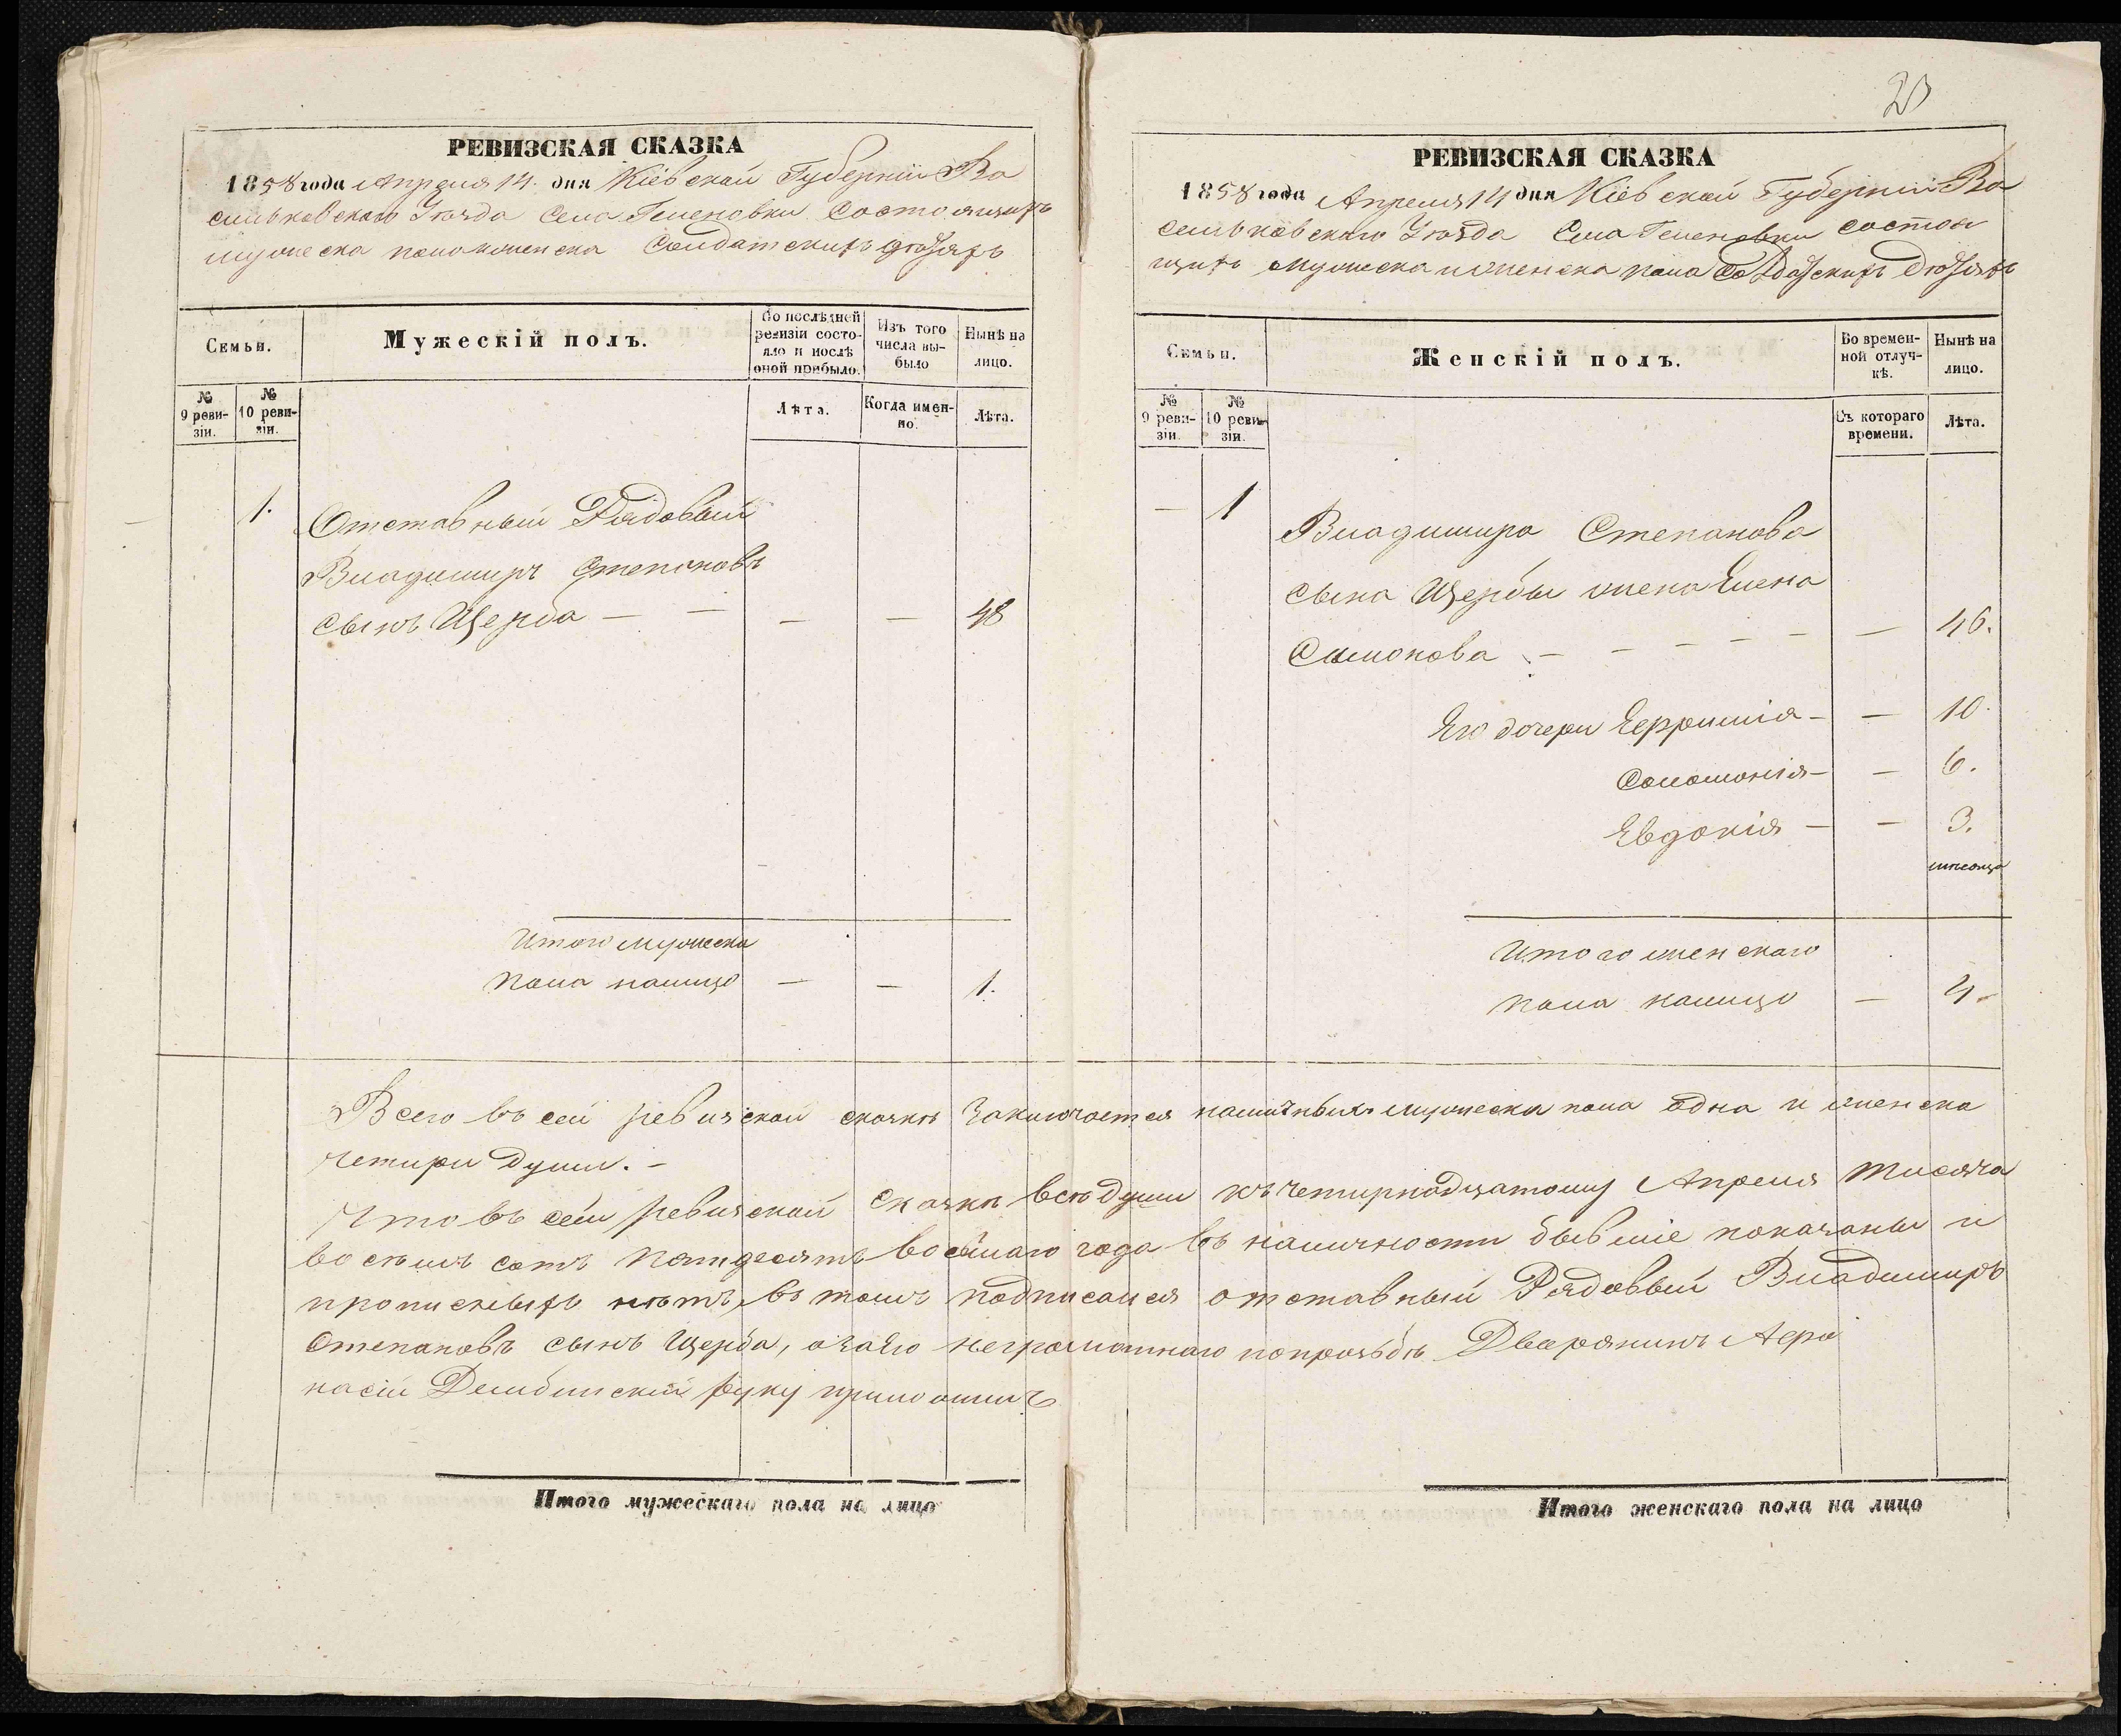 23
РЕВИЗСКАЯ СКАЗКА
1858 года Апреля 14 дня Кіевской Губерніи Ва
сильковскаго Уѣзда Села Геленовки Состоящихъ
мужеска пола женска Солдатскихъ дѣтяхъ
Семьи.
Мужескій полъ.
По послѣдней ревизіи состояло и послѣ оной прибыло.
Изъ того числа выбыло
Нынѣ на лицо.
№ 9 ревизіи.
№ 10 ревизіи.
Лѣта.
Когда именно.
Лѣта.
1. Отставный Рядовый
Владимиръ Степановъ
сынъ Щерба — — — — 48
Итого мужеска
пола налицо — — 1.
РЕВИЗСКАЯ СКАЗКА
1858 года Апреля 14 дня Кіевской Губерніи Ва
сильковскаго Уѣзда Села Геленовки состоя
щихъ мужеска и женска пола Солдатскихъ дѣтяхъ
Семьи.
Женскій полъ.
Во временной отлучкѣ.
Нынѣ на лицо.
№ 9 ревизіи.
№ 10 ревизіи.
Съ котораго времени.
Лѣта.
— 1 Владимира Степанова
сына Щербы жена Елена
Симонова — — — — — 46.
Его дочери Ефросинія — — 10.
Соломонія — — 6.
Евдокія — — 3.
мѣсяца
Итого женскаго
пола налицо — 4
Всего въ сей ревизской сказкѣ заключается наличныхъ мужеска пола одна и женска
четыри души. —
Что въ сей ревизской сказкѣ всѣ души къ четырнадцатому Апреля тисяча
восемъ сотъ пятдесятъ восьмаго года въ наличности бывшіе показаны и
прописныхъ нѣтъ, въ томъ подписался отставный Рядовый Владимиръ
Степановъ сынъ Щерба, а за его неграматнаго попрозьбѣ Дварянинъ Афа
насій Дембинскій руку приложилъ
Итого мужескаго пола на лицо
Итого женскаго пола на лицо